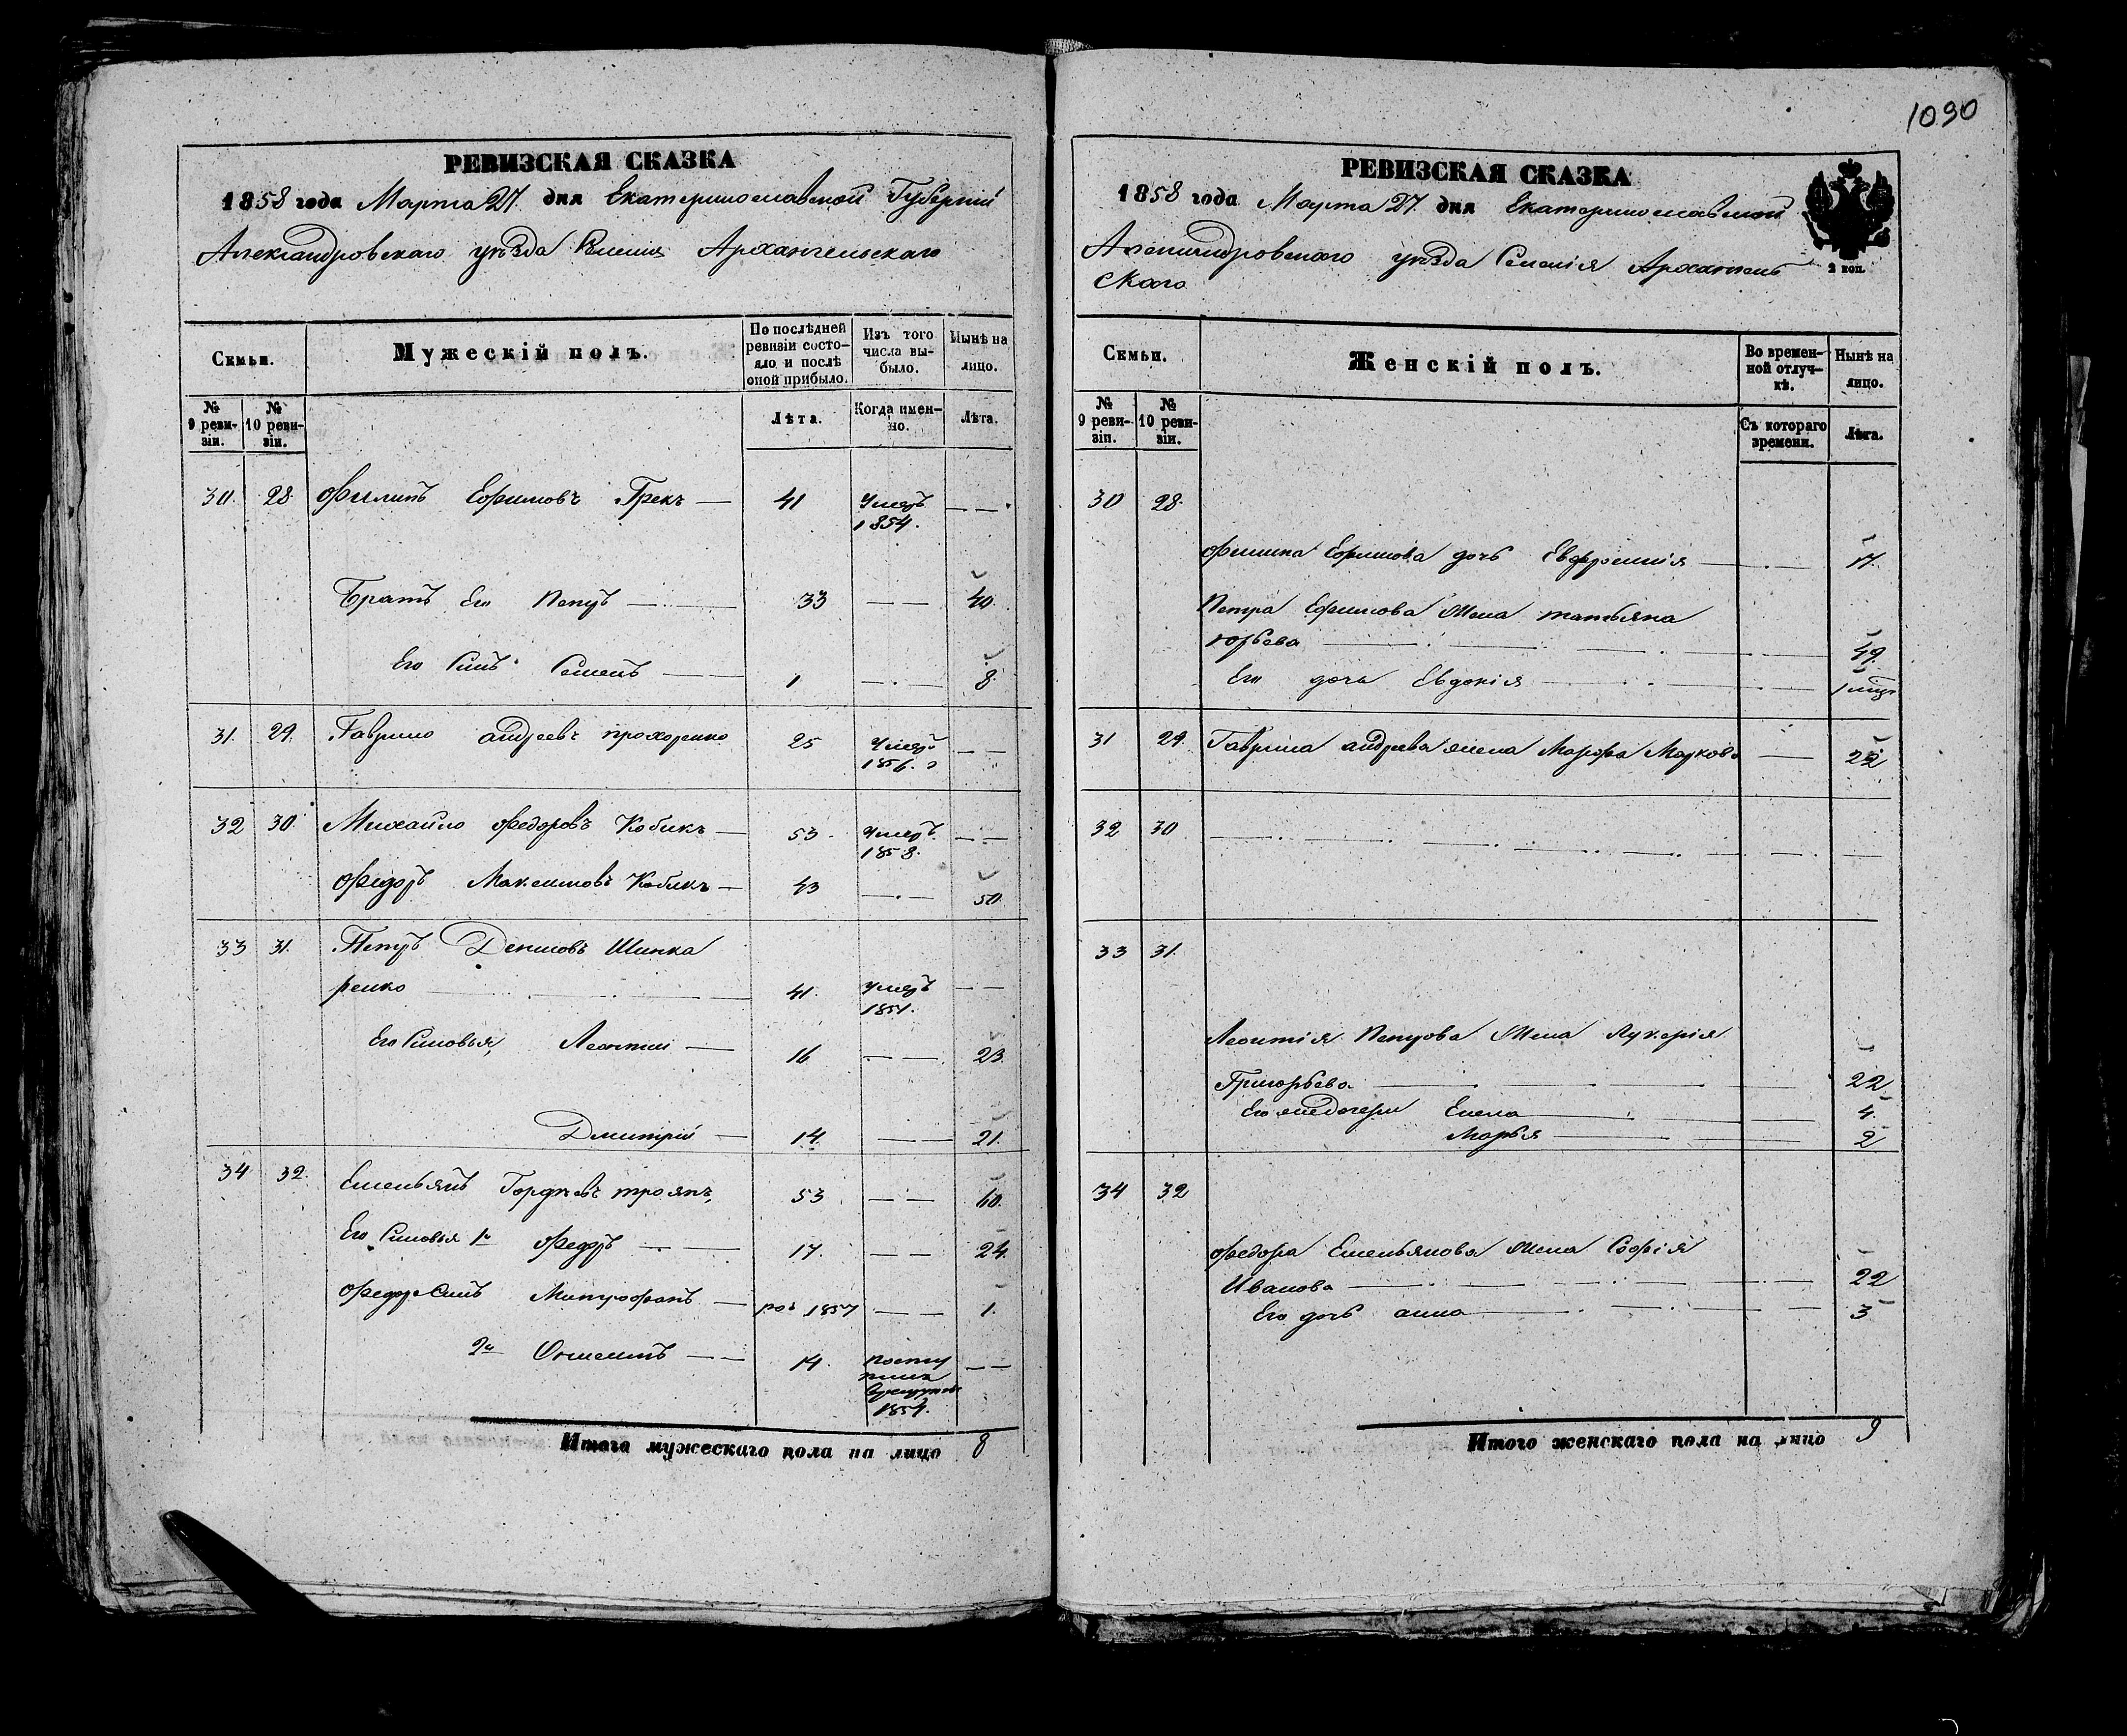 1090
РЕВИЗСКАЯ СКАЗКА
1858 года Марта 27. дня Екатеринославской Губернии
Александровскаго уѣзда Селенія Архангельскаго
Семьи.
Мужескій полъ.
По послѣдней ревизіи состояло и послѣ оной прибыло.
Изъ того числа выбыло.
Нынѣ на лицо.
№ 9 ревизіи.
№ 10 ревизіи.
Лѣта.
Когда именно.
Лѣта.
30. 28. Филипъ Ефимовъ Грекъ — 41 Умеръ 1854. — —
Братъ Его Петръ — 33 — — 40
Его Сынъ Семенъ — 1 — 8.
31. 29. Гаврило андреевъ прохоренко 25 Умеръ — —
32 30. Михайло Федоровъ Кобикъ — 53 Умеръ 1858. — —
Федоръ Максимовъ Кобикъ — 43 — 50
33 31. Петръ Денисовъ Шинка
ренко — 41. Умеръ 1851. — —
Его Сыновья, Леонтій — 16 — — 23.
Дмитрій — 14. — 21.
34 32. Емельянъ Гордѣевъ троянъ, 53 — — 60.
Его Сыновья 1й Федоръ — 17 — — 24.
Федора Сынъ Митрофанъ — 1857 — — 1.
2й — 14. 1854. — —
Итого мужескаго пола на лицо 8
РЕВИЗСКАЯ СКАЗКА
1858 года Марта 27. дня Екатеринославской
Александровскаго уѣзда Селенія Архангель
скаго
2 коп.
Семьи.
Женскій полъ.
Во временной отлучкѣ.
Нынѣ на лицо.
№ 9 ревизіи.
№ 10 ревизіи.
Съ котораго времени.
Лѣта.
30 28.
Филипа Ефимова дочь Евфросинія —
Петра Ефимова Жена татьяна
юрьева — 49.
Его дочь Евдокія —
31 29. Гаврила андреева жена Марфа Маркова — 22
32 30 —
33 31.
Леонтія Петрова Жена Лукерія
Григорьева — 22
Елена — 4.
Марья — 2
34 32
Федора Емельянова Жена Софія
Иванова — 22
Его дочь анна — 3
Итого женскаго пола на лицо 9